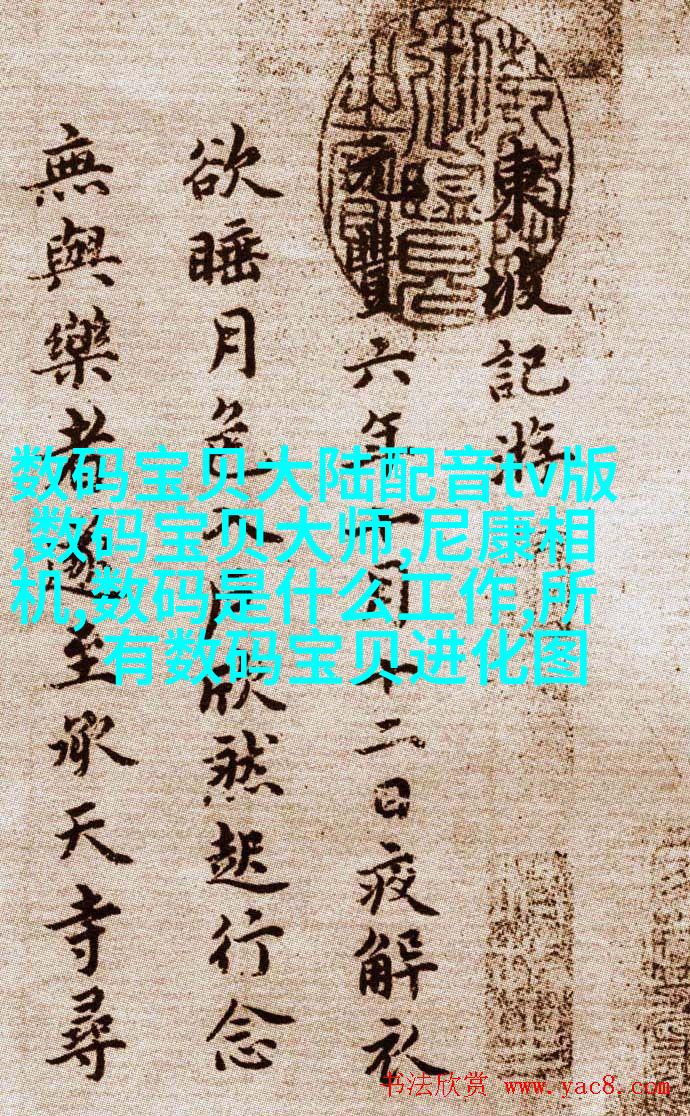 東坡記游
元豐六年十月十二日夜解衣
欲睡月色入户欣然起行念
無與樂者遂至承天寺尋
数码宝贝大陆配音tv版
,数码宝贝大师,尼康相
机,数码是什么工作,所
有数码宝贝进化图
书法欣赏 www.yac8.com